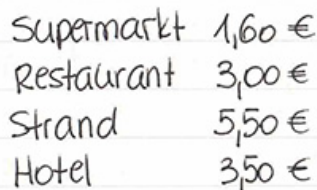 Supermarkt 1,60 €
Restaurant 3,00 €
Strand 5,50 €
Hotel 3,50 €